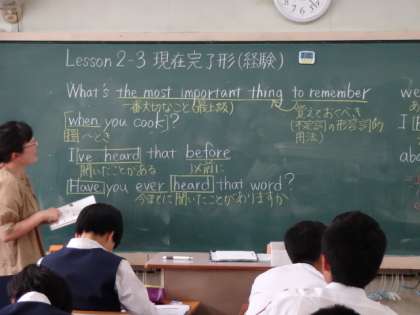 Lesson 2-3 現在完了形(経験)
What's the most important thing to remember
一番大切なこと(最上級) 覚えておくべき
when you cook? (不定詞の形容詞的
とき 用法)
I've heard that before
聞いたことがある 以前に
Have you ever heard that word?
今までに聞いたことがありますか
we
I